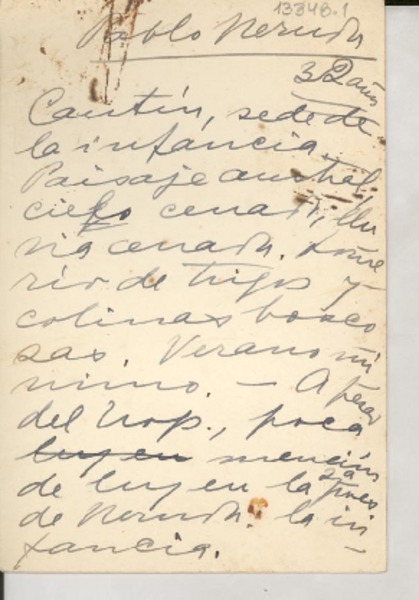 13348.1
Pablo Neruda
32 años
Cautín, sede de
la infancia.
Paisaje austral
cielo cerrado, llu
via cerrada. Lome
río de trigos y
colinas bosco
sas. Verano mí
nimo. — A pesar
del trop., poca
luz en mención
de luz en la
de Neruda. la in
fancia.